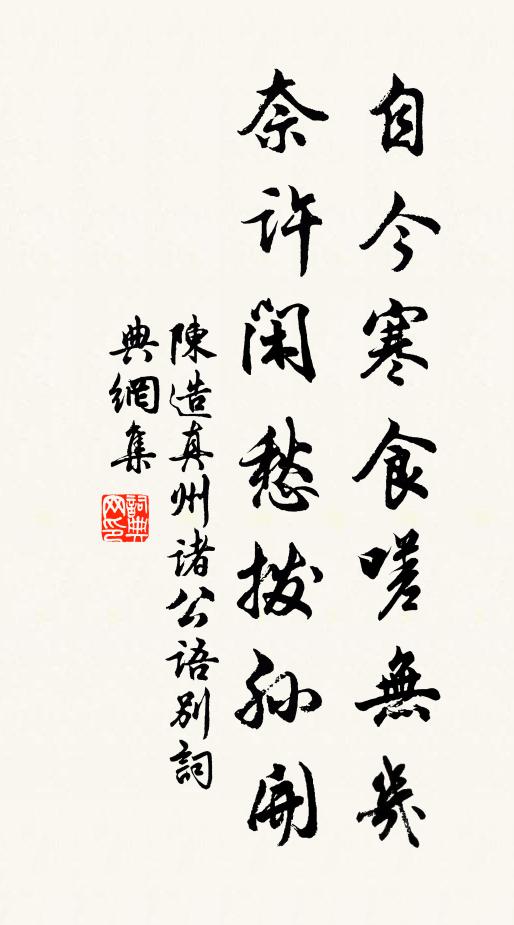 自今寒食嗟無幾
奈許閑愁撥不開
陳造真州诸公语别詞
典網集
詞典
网印